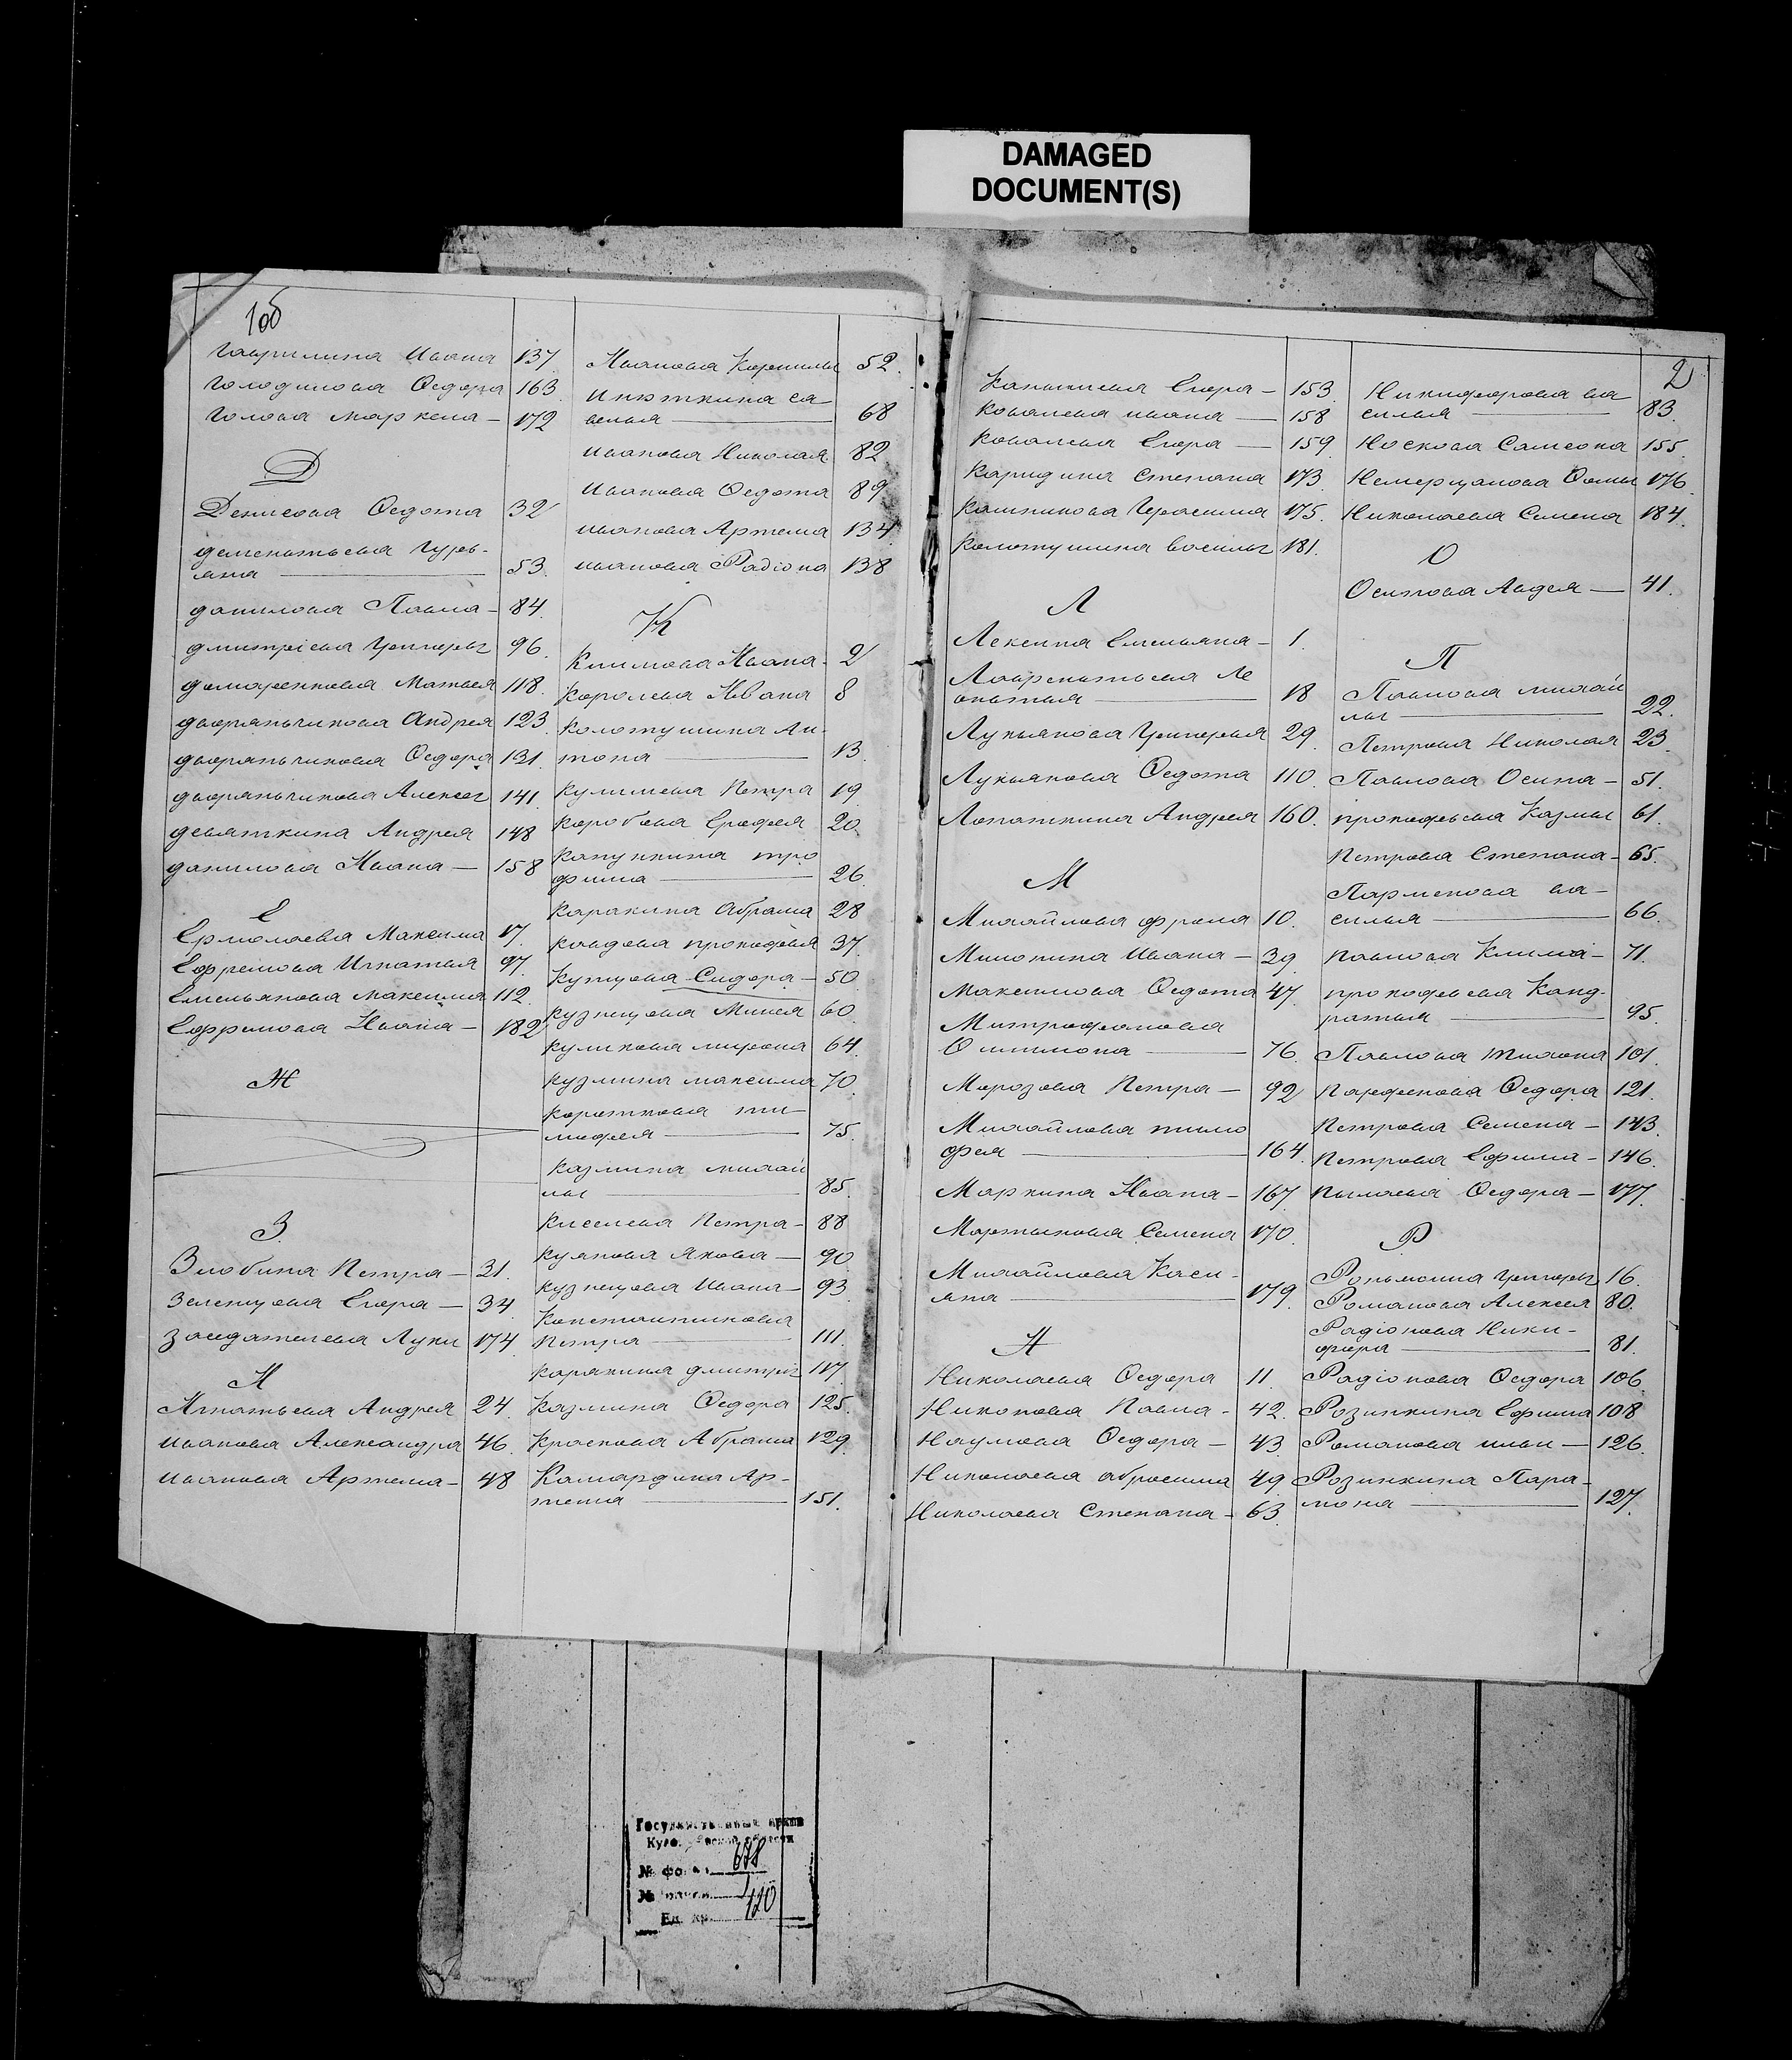 DAMAGED
DOCUMENT(S)
1об
Гаврилина Ивана 137.
Голодилова Федора 163.
Голова Маркела 172
Д
Денисова Федота 32
дементьева Гурь-
яна 53.
данилова Павла 84.
дмитріева Григорья 96.
домаренкова Матвея 118.
дворянчикова Андрея 123.
дворянчикова Федора 131.
дворянчикова Алексея 141.
девяткина Андрея 148
данилова Ивана 158
Е
Ермолаева Максима 17.
Ефремова Игнатья 97.
Емельянова максима 112.
Ефремова Ивана 182
Ж
З.
Злобина Петра 31.
Зеленцова Егора 34
Заседателева Луки 174
И
Игнатьева Андрея 24.
иванова Александра 46.
иванова Артема 48
Иванова Корнилы 52.
Инюткина са
велья 68
иванова Николая 82
иванова Федота 89.
иванова Артема 134
иванова Радіона 138
К
Климова Ивана 2
Королева Ивана 8
Колотушина Ан-
тона 13.
Кулишева Петра 19.
Коробова Ерофея 20.
Капункина тро
фима 26.
Каракина Абрама 28
Кондева прокофья 37.
Купцова Сидора 50.
Кузнецова Минея 60.
куликова мирона 64.
Кузмина максима 70.
Короткова ти-
мофея 75.
Казмина михай
лы 85.
Киселева Петра 88
Куянова Якова 90.
Кузнецова Ивана 93.
Константинова
Петра 111.
Каракина дмитрія 117.
Казмина Федора 125.
Краснова Абрама 129.
Камардина Ар-
тема 151.
2
Егора 153.
Ковалева ивана 158
Ковалева Егора 159.
Каридина Степана 173.
Калинкова Герасима 175.
Колотушина василья 181.
Л
Лексина Емельяна 1.
Лаврентьева Ле
онтья 18
Лукьянова Григорья 29.
Лукьянова Федота 110.
Лопаткина Андрея 160.
М
Михайлова фрола 10.
Милонина Ивана 39.
Максимова Федота 47.
Митрофанова
Филимона 76.
Морозова Петра 92
Михайлова тимо
фея 164.
Маркина Ивана 167.
Мартынова Семена 170.
Михайлова Каси-
яна 179.
Н
Николаева Федора 11.
Никонова Павла 42.
Наумова Федора 43.
Николаева абросима 49.
Николаева Степана 63.
Никифорова ва
силья 83.
Носкова Самсона 155.
Немерцалова Фомы 176.
Николаева Семена 184.
О
Осипова Авдея 41.
П
Павлова михай
лы 22.
Петрова Николая 23.
Павлова Осипа 51.
прокофьева Казмы 61.
Петрова Степана 65.
Парменова ва-
силья 66.
павлова Клима 71.
прокофьева Конд-
ратья 95.
Павлова тихона 101.
парфенова Федора 121.
Петрова Семена 143.
Петрова Ефима 146.
Пылаева Федора 177.
Р
Григорья 16.
Романова Алексея 80.
Радіонова Ники-
фора 81.
Радіонова Федора 106.
Розинкина Ефима 108
Романова ильи 126.
Розинкина Пара-
мона 127.
Государственный архив
области
№ фонда 678
№ описи 1
Ед. хр. 120